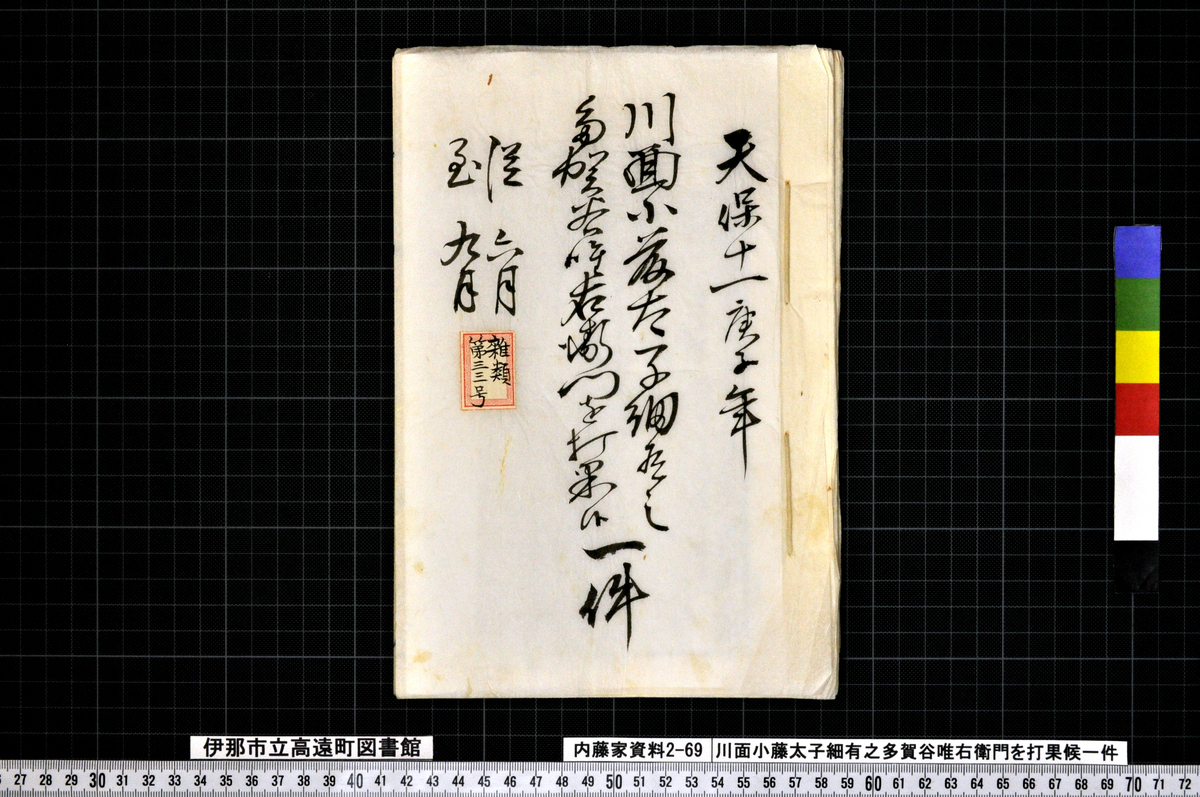 天保十一庚子年
川面小藤太子細有之
多賀谷唯右衛門を打果候
一件
従 六月
至 九月
雑類
第三三号
伊那市立高遠町図書館
内藤家資料2-69
川面小藤太子細有之多賀谷唯右衛門を打果候一件
27 28 29 30 31 32 33 34 35 36 37 38 39 40 41 42 43 44 45 46 47 48 49 50 51 52 53 54 55 56 57 58 59 60 61 62 63 64 65 66 67 68 69 70 71 72